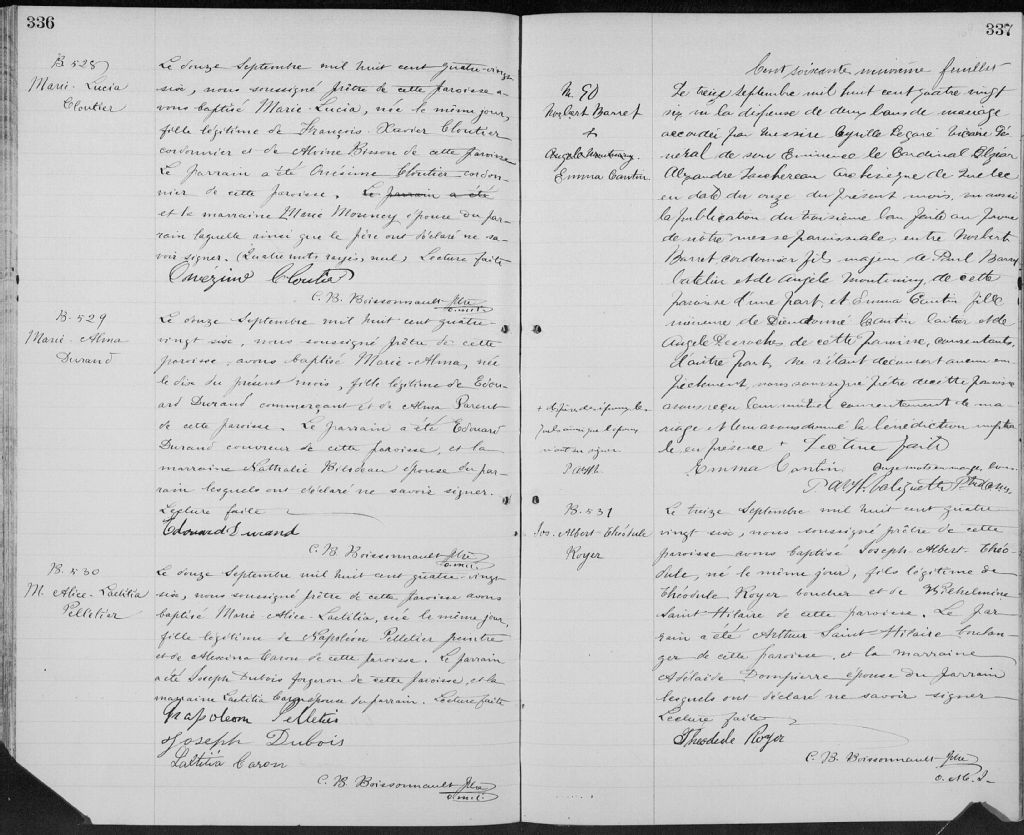 336
B. 528
Marie-Lucia
Cloutier
Le douze Septembre mil huit cent quatre-vingt
six, nous soussigné prêtre de cette paroisse a-
vons baptisé Marie-Lucia, née le même jour,
fille légitime de François-Xavier Cloutier
cordonnier et de Alvine Bisson de cette paroisse
Le parrain a été Onésime Cloutier cordon-
nier de cette paroisse. Le parrain a été
et la marraine Marie Mouncy épouse du par-
rain laquelle ainsi que le père ont déclaré ne sa-
voir signer. (Quatre mots rayés, nuls) Lecture faite
Onézime Cloutier
C. B. Boissonnault ptre
o.m.i.
B. 529
Marie-Alma
Durand
Le douze Septembre mil huit cent quatre-
vingt six, nous soussigné prêtre de cette
paroisse, avons baptisé Marie-Alma, née
le dix du présent mois, fille légitime de Edou-
ard Durand commerçant et de Alma Parent
de cette paroisse. Le parrain a été Edouard
Durand couvreur de cette paroisse, et la
marraine Nathalie Bilodeau épouse du par-
rain lesquels ont déclaré ne savoir signer.
Lecture faite
Edouard Durand
C. B. Boissonnault ptre
o.m.i.
B. 530
M. Alice-Laetitia
Pelletier
Le douze Septembre mil huit cent quatre-vingt-
six, nous soussigné prêtre de cette paroisse avons
baptisé Marie-Alice-Laetitia, née le même jour,
fille légitime de Napoléon Pelletier peintre
et de Alexina Caron de cette paroisse. Le parrain
a été Joseph Dubois forgeron de cette paroisse, et la
marraine Laetitia Caron épouse du parrain. Lecture faite
Napoleon Pelletier
Joseph Dubois
Laetitia Caron
C. B. Boissonnault ptre
o.m.i.
337
Cent soixante neuvième feuillet
M. 90
Norbert Barret
+
Angele Montminy
Emma Cantin
Le treize septembre mil huit cent quatre vingt
six vu la dispense de deux bans de mariage
accordée par Messire Cyrille Legaré Vicaire Gé-
néral de son Eminence le Cardinal Elzéar
Alexandre Taschereau Archevêque de Quebec
en date du onze du présent mois, vu aussi
la publication du troisième ban faite au prone
de nôtre messe paroissiale, entre Norbert
Barret cordonnier fils majeur de Paul Barret
et de Angèle Montminy, de cette
paroisse d'une part, et Emma Cantin fille
mineure de Dieudonné Cantin et de
Angele Desroches de cette paroisse, consentants,
d'autre part, ne s'étant découvert aucun em-
pêchement, nous soussigné prêtre de cette paroisse
avons reçu leur mutuel consentement de ma-
riage et leur avons donné la bénédiction nuptia-
le en présence + Lecture faite
+ du père de l'époux
ainsi que l'époux
n'ont su signer.
Emma Cantin
B. 531
Jos. Albert-Théodule
Royer
Le treize Septembre mil huit cent quatre
vingt six, nous soussigné prêtre de cette
paroisse avons baptisé Joseph-Albert-Théo-
dule, né le même jour, fils légitime de
Théodule Royer boucher et de Wilhelmine
Saint-Hilaire de cette paroisse. Le par-
rain a été Arthur Saint-Hilaire boulan-
ger de cette paroisse, et la marraine
Adélaïde Dompierre épouse du parrain
lesquels ont déclaré ne savoir signer
Lecture faite
Theodule Royer
C. B. Boissonnault ptre
o.M.I.